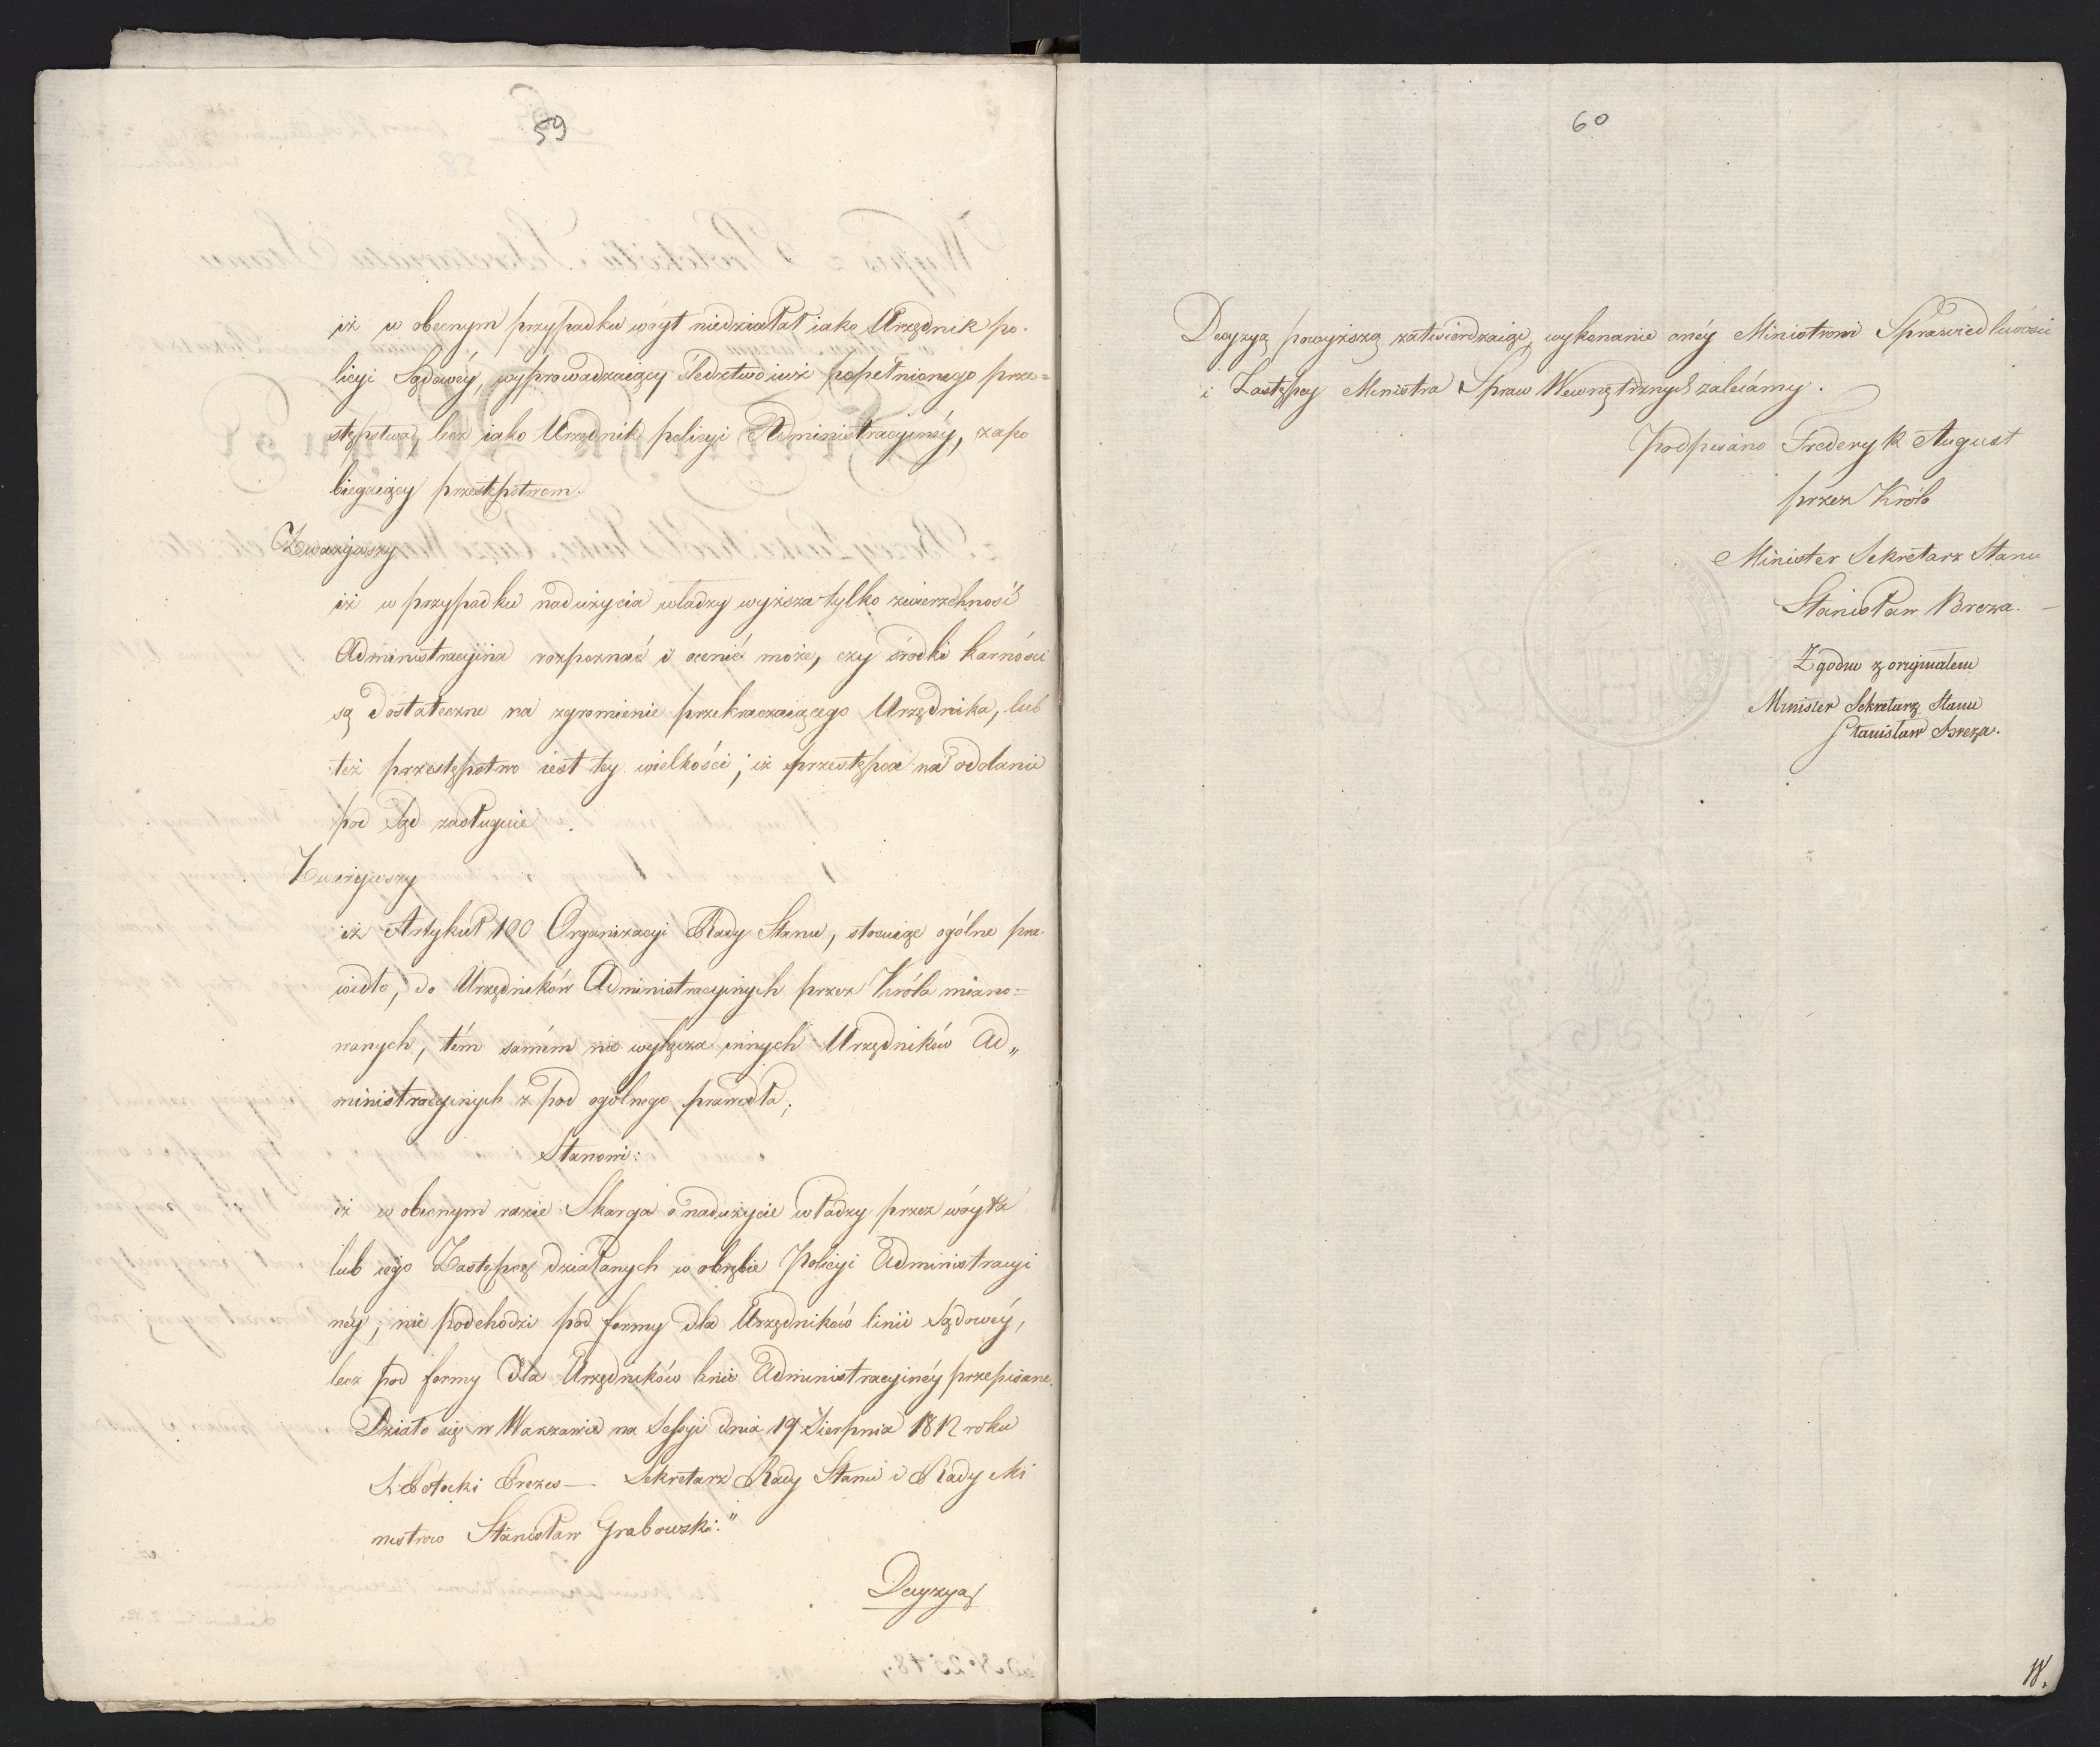 59
iż w obecnym przypadku wóyt niedziałał iako Urzędnik po-
licyi Sądowéy, wyprowadzaiący śledztwo iuż popełnionego prze=
stępstwa, lecz iako Urzędnik policyi Administracyinéy, zapo
biegaiący przestępstwom.
Zważywszy
iż w przypadku nadużycia władzy wyższa tylko zwierzchność
Administracyina rozpoznać i ocenić może, czy środki karności
są dostateczne na zgromienie przekraczaiącego Urzędnika, lub
też przestępstwo iest tey wielkości, iż przestępca na oddanie
pod Sąd zasługuie.
Zważywszy
iż Artykuł 100 Organizacyi Rady Stanu, stosuiąc ogólne pra-
widło, do Urzędników Administracyinych przez Króla miano=
wanych, tém samém nie wyłącza innych Urzędników Ad„
ministracyinych z pod ogólnego prawidła;
Stanowi:
iż w obecnym razie Skarga o nadużycie władzy przez wóyta
lub iego Zastępcę działanych w obrębie Policyi Administracyi
néy, nie podchodzi pod formy dla Urzędników linii Sądowéy,
lecz pod formy dla Urzędników linii Administracyinéy przepisane.
Działo się w Warszawie na Sessyi dnia 19 Sierpnia 1812 roku
S. Potocki Prezes — Sekretarz Rady Stanu i Rady Mi
nistrow Stanisław Grabowski."
Decyzya
60
Decyzyą powyższą zatwierdzaiąc, wykonanie onéy Ministrowi Sprawiedliwości
i Zastępcy Ministra Spraw Wewnętrznych zalecámy.
Podpisano Frederyk August
przez Króla
Minister Sekretarz Stanu
Stanisław Breza. —
Zgodno z oryginałem
Minister Sekretarz Stanu
Stanisław Breza.